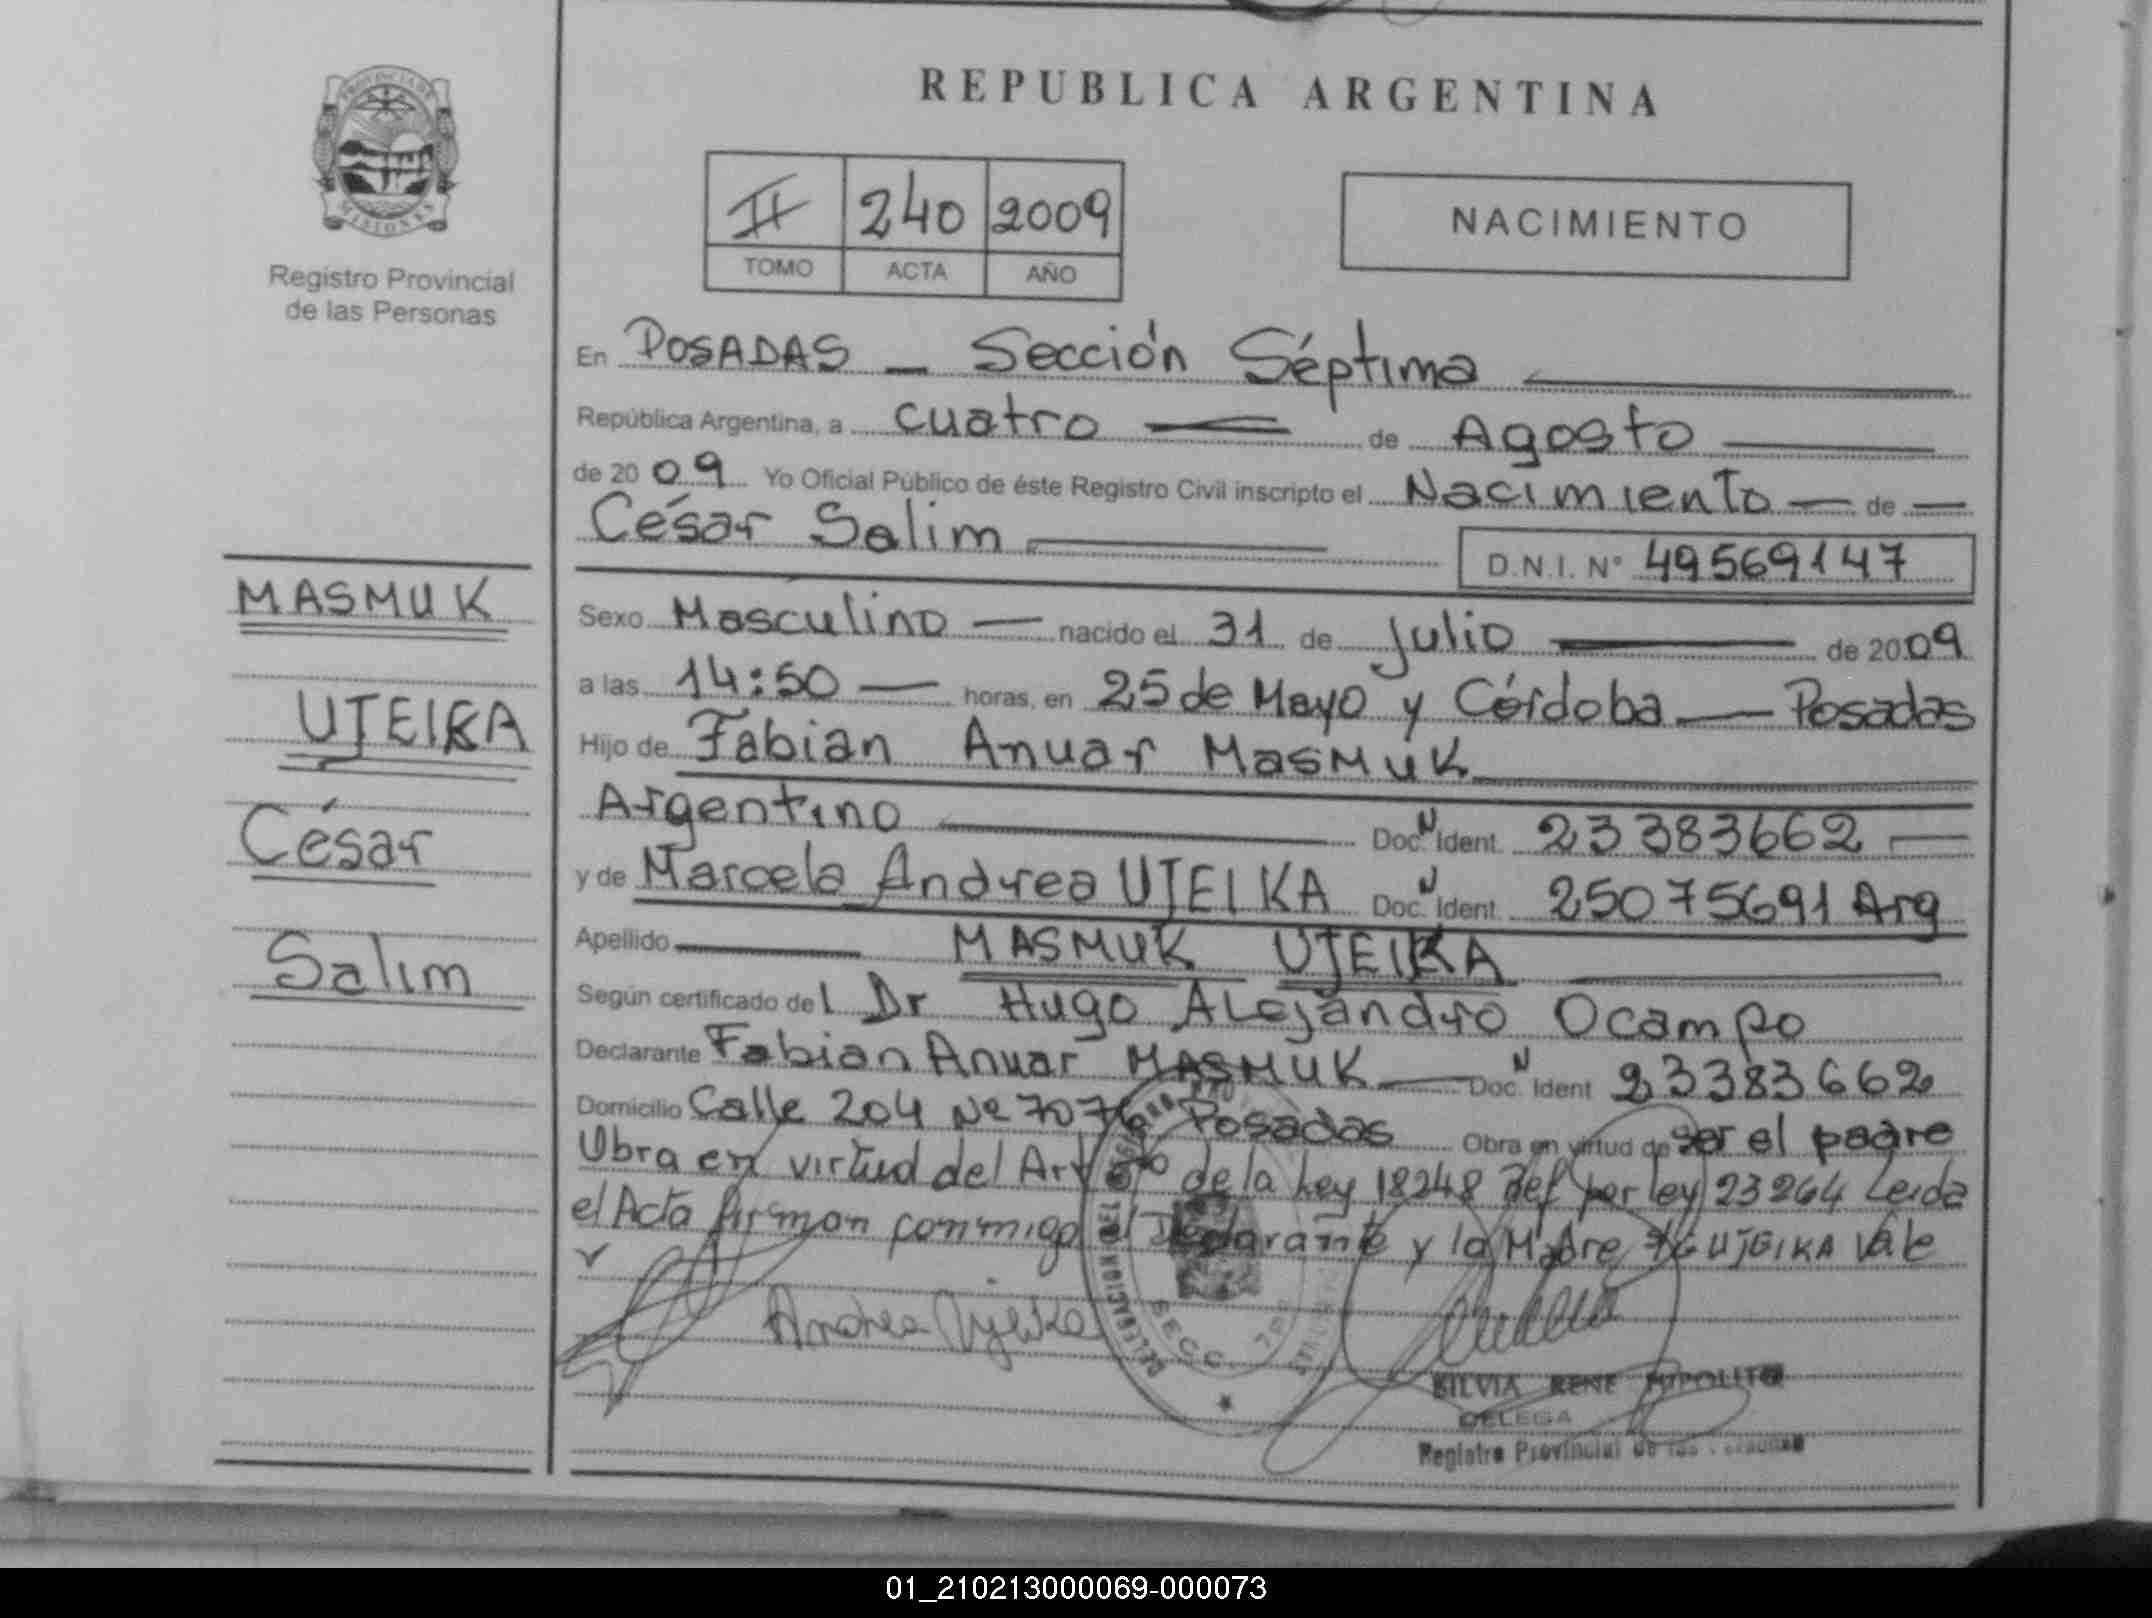 REPUBLICA ARGENTINA
PROVINCIA DE MISIONES
Registro Provincial
de las Personas
II 240 2009
TOMO ACTA AÑO
NACIMIENTO
En POSADAS - Sección Séptima
República Argentina, a cuatro de Agosto
de 2009 Yo Oficial Público de éste Registro Civil inscripto el Nacimiento de
César Salim
D.N.I. Nº 49569147
Sexo Masculino nacido el 31 de Julio de 2009
a las 14:50 horas, en 25 de Mayo y Córdoba Posadas
Hijo de Fabian Anuar MASMUK
Argentino Doc. N Ident. 23383662
y de Marcela Andrea UJEIKA Doc. N Ident. 25075691 Arg
Apellido MASMUK UJEIKA
Según certificado del Dr Hugo ALejandro Ocampo
Declarante Fabian Anuar MASMUK Doc. N Ident 23383662
Domicilio Calle 204 Nº 7076 Posadas Obra en virtud de ser el padre
Obra en virtud del Art de la Ley 18248 por ley 23264 Leida
el Acta firman conmigo el Declarante y la Madre UJEIKA Vale
MASMUK
UJEIKA
César
Salim
Andrea Ujeika
DELEGACION
SECC. 7ma
SILVIA RENE HIPOLITO
DELEGA
Registro Provincial de las Personas
01_210213000069-000073